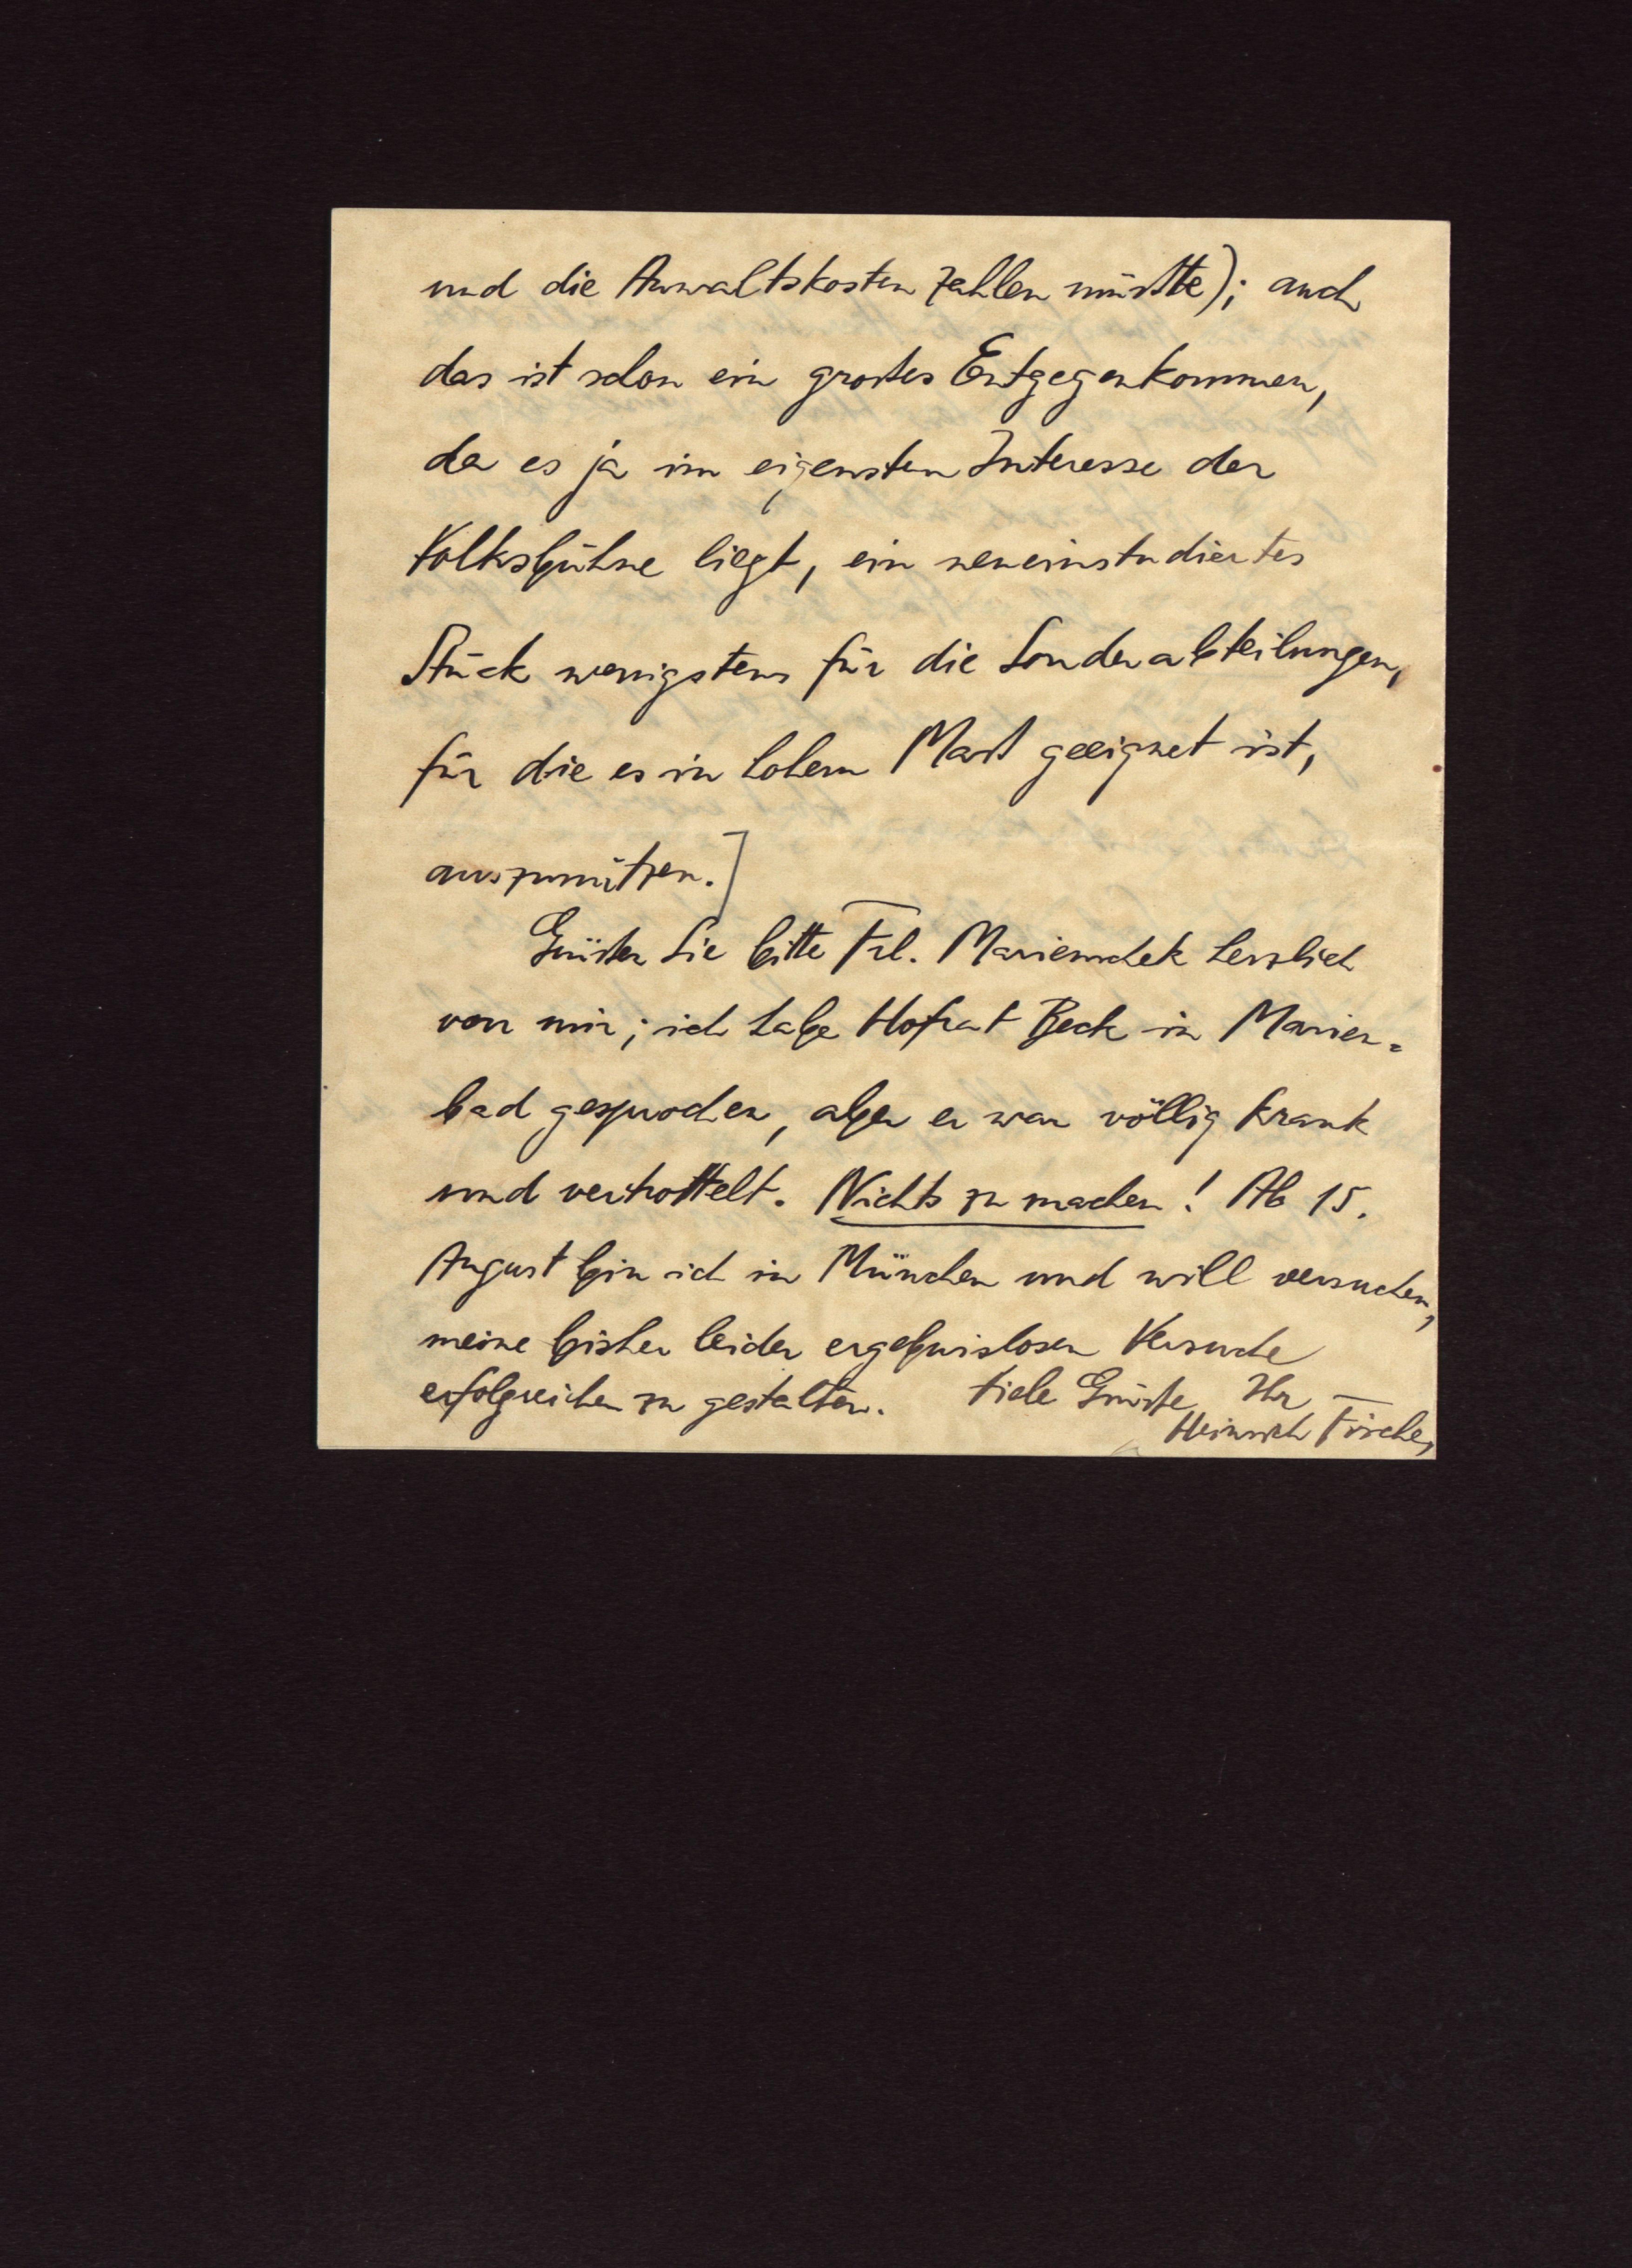 und die Anwaltskosten zahlen müßte); auch
das ist schon ein großes Entgegenkommen,
da es ja im eigensten Interesse der
Volksbühne liegt, ein neueinstudiertes
Stück wenigstens für die Sonderabteilungen,
für die es in hohem Maß geeignet ist,
auszunützen.]
Grüßen Sie bitte Frl. Marienschek herzlich
von mir; ich habe Hofrat Beck in Marien-
bad gesprochen, aber er war völlig krank
und vertrottelt. Nichts zu machen! Ab 15.
August bin ich in München und will versuchen,
meine bisher leider ergebnislosen Versuche
erfolgreicher zu gestalten. Viele Grüße Ihr
Heinrich Fischer